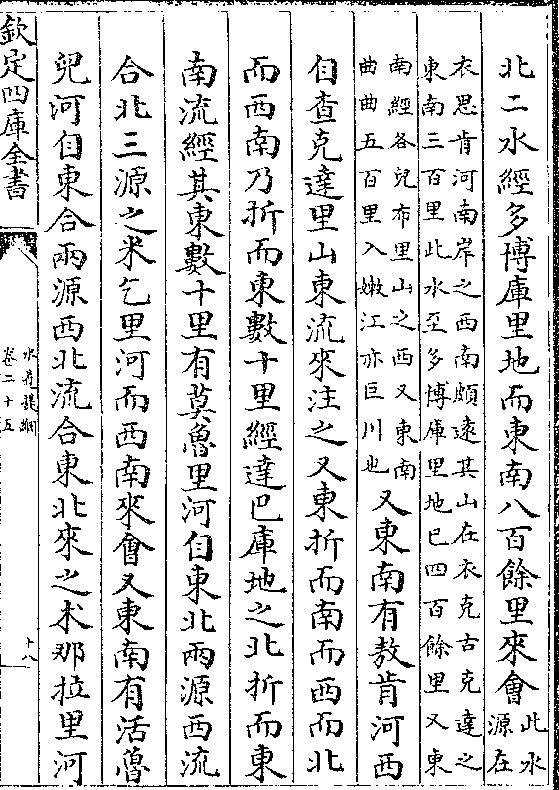 北二水經多博庫里地而東南八百餘里來會此水源在
衣思肯河南岸之西南頗逺其山在衣克古克達之
東南三百里此水至多博庫里地已四百餘里又東
南經各兒布里山之西又東南
曲曲五百里入嫩江亦巨川也
又東南有敖肯河西
自查克達里山東流來注之又東折而南而西而北
而西南乃折而東數十里經達巴庫地之北折而東
南流經其東數十里有莫魯里河自東北兩源西流
合北三源之米乞里河而西南來會又東南有活魯
兒河自東合兩源西北流合東北來之术那拉里河
欽定四庫全書
水道提綱
卷二十五
十八